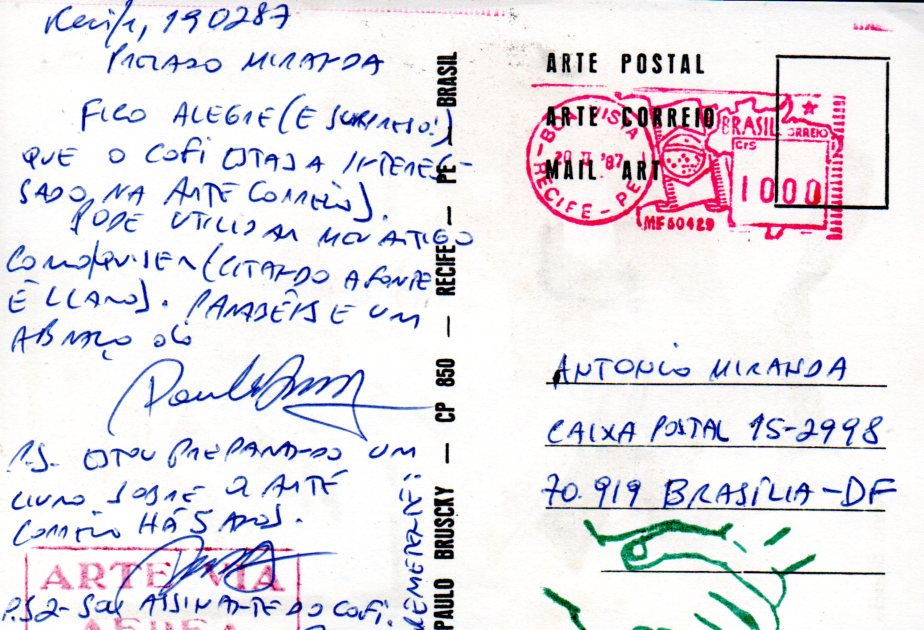 Recife, 190287
PREZADO MIRANDA
FICO ALEGRE (E SURPRESO!)
QUE O COFI ESTAJA INTERES-
SADO NA ARTE CORREIO).
PODE UTILIZAR MEU ARTIGO
COMO QUISER (CITANDO A FONTE
É CLARO). PARABÉNS E UM
ABRAÇO do
P.S. ESTOU PREPARANDO UM
LIVRO SOBRE a ARTE
CORREIO HÁ 5 ANOS.
ARTE VIA
AEREA
P.S 2- Sou ASSINANTE DO COFI.
REMETENTE:
PAULO BRUSCKY — CP 850 — RECIFE — PE — BRASIL
ARTE POSTAL
ARTE CORREIO
MAIL ART
BOA VISTA
20 II '87
RECIFE - PE
BRASIL
CORREIO
Cr$
1000
MF60429
ANTONIO MIRANDA
CAIXA POSTAL 15-2998
70.919 BRASÍLIA-DF